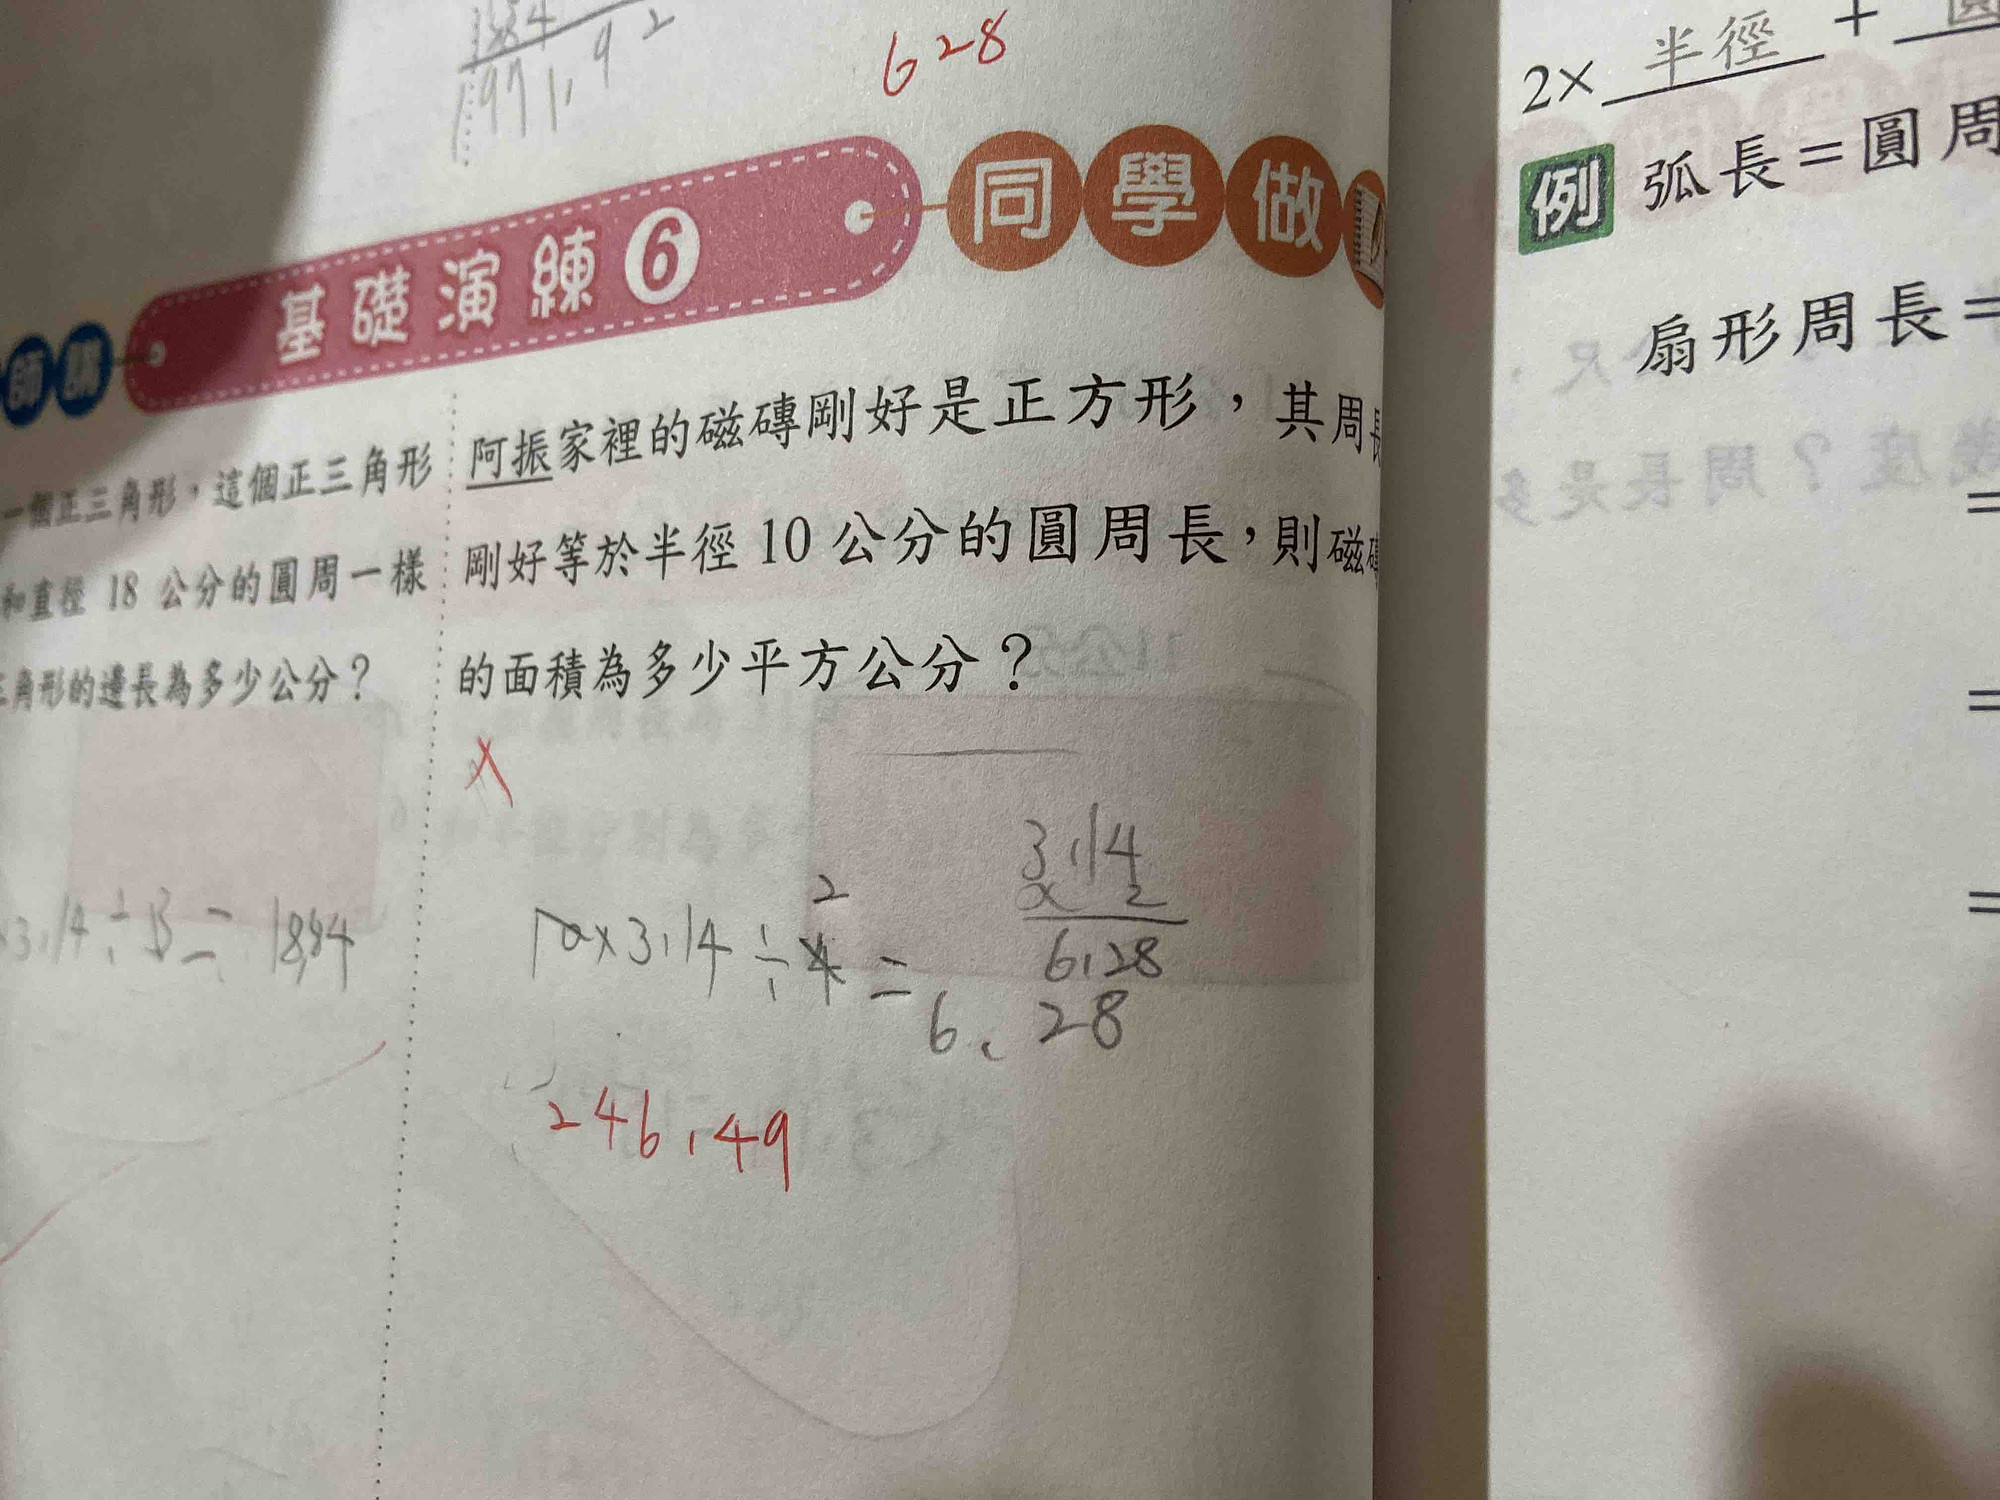 628
1884
1971.92
基礎演練6 同學做
師講
一個正三角形，這個正三角形
和直徑 18 公分的圓周一樣
三角形的邊長為多少公分？
×3.14÷3= 18.84
阿振家裡的磁磚剛好是正方形，其周長
剛好等於半徑 10 公分的圓周長，則磁磚
的面積為多少平方公分？
10×3.14÷4=
2
6.28
3.14
×2
6.28
246.49
2× 半徑 + 圓
例 弧長＝圓周
扇形周長＝
＝
＝
＝